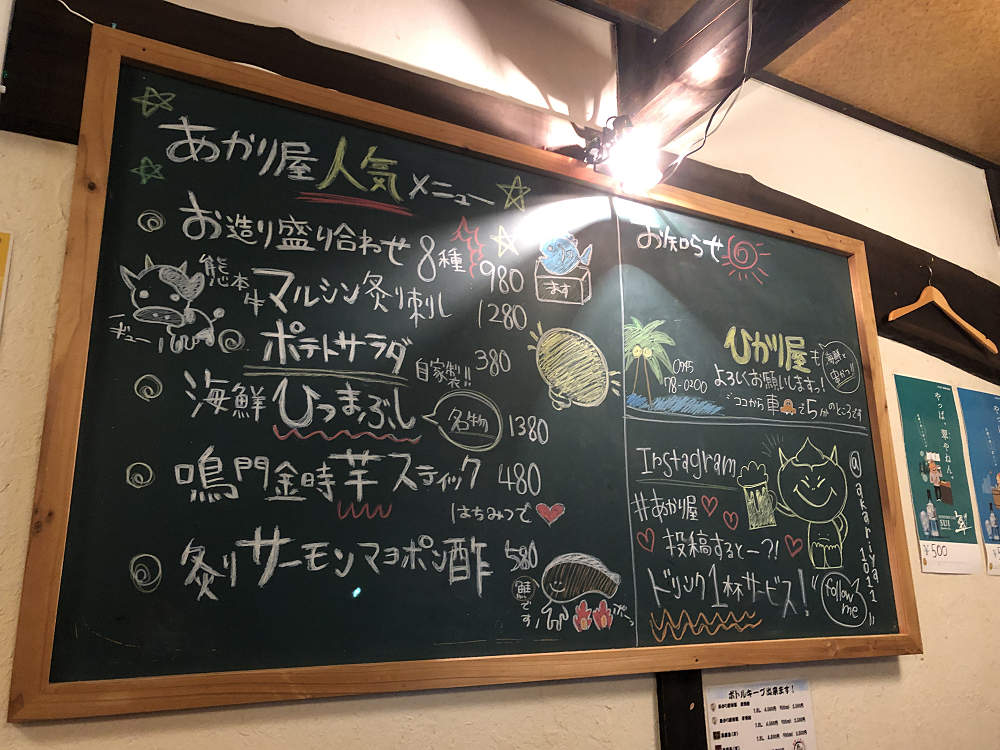 あかり屋人気メニュー
お造り盛り合わせ8種 980
ます
熊本牛マルシン炙り刺し 1280
ギュー
ポテトサラダ 自家製!! 380
海鮮ひつまぶし 名物 1380
鳴門金時芋スティック 480
はちみつで
炙りサーモンマヨポン酢 580
鮭です
お知らせ
ひかり屋も
よろしくお願いしますっ!
ココから車で5分のところです
Instagram
#あかり屋
投稿するとー?!
ドリンク1杯サービス!
@akariya1011
follow me
やっぱ、翠やねん。
翠
¥500
ボトルキープ出来ます!